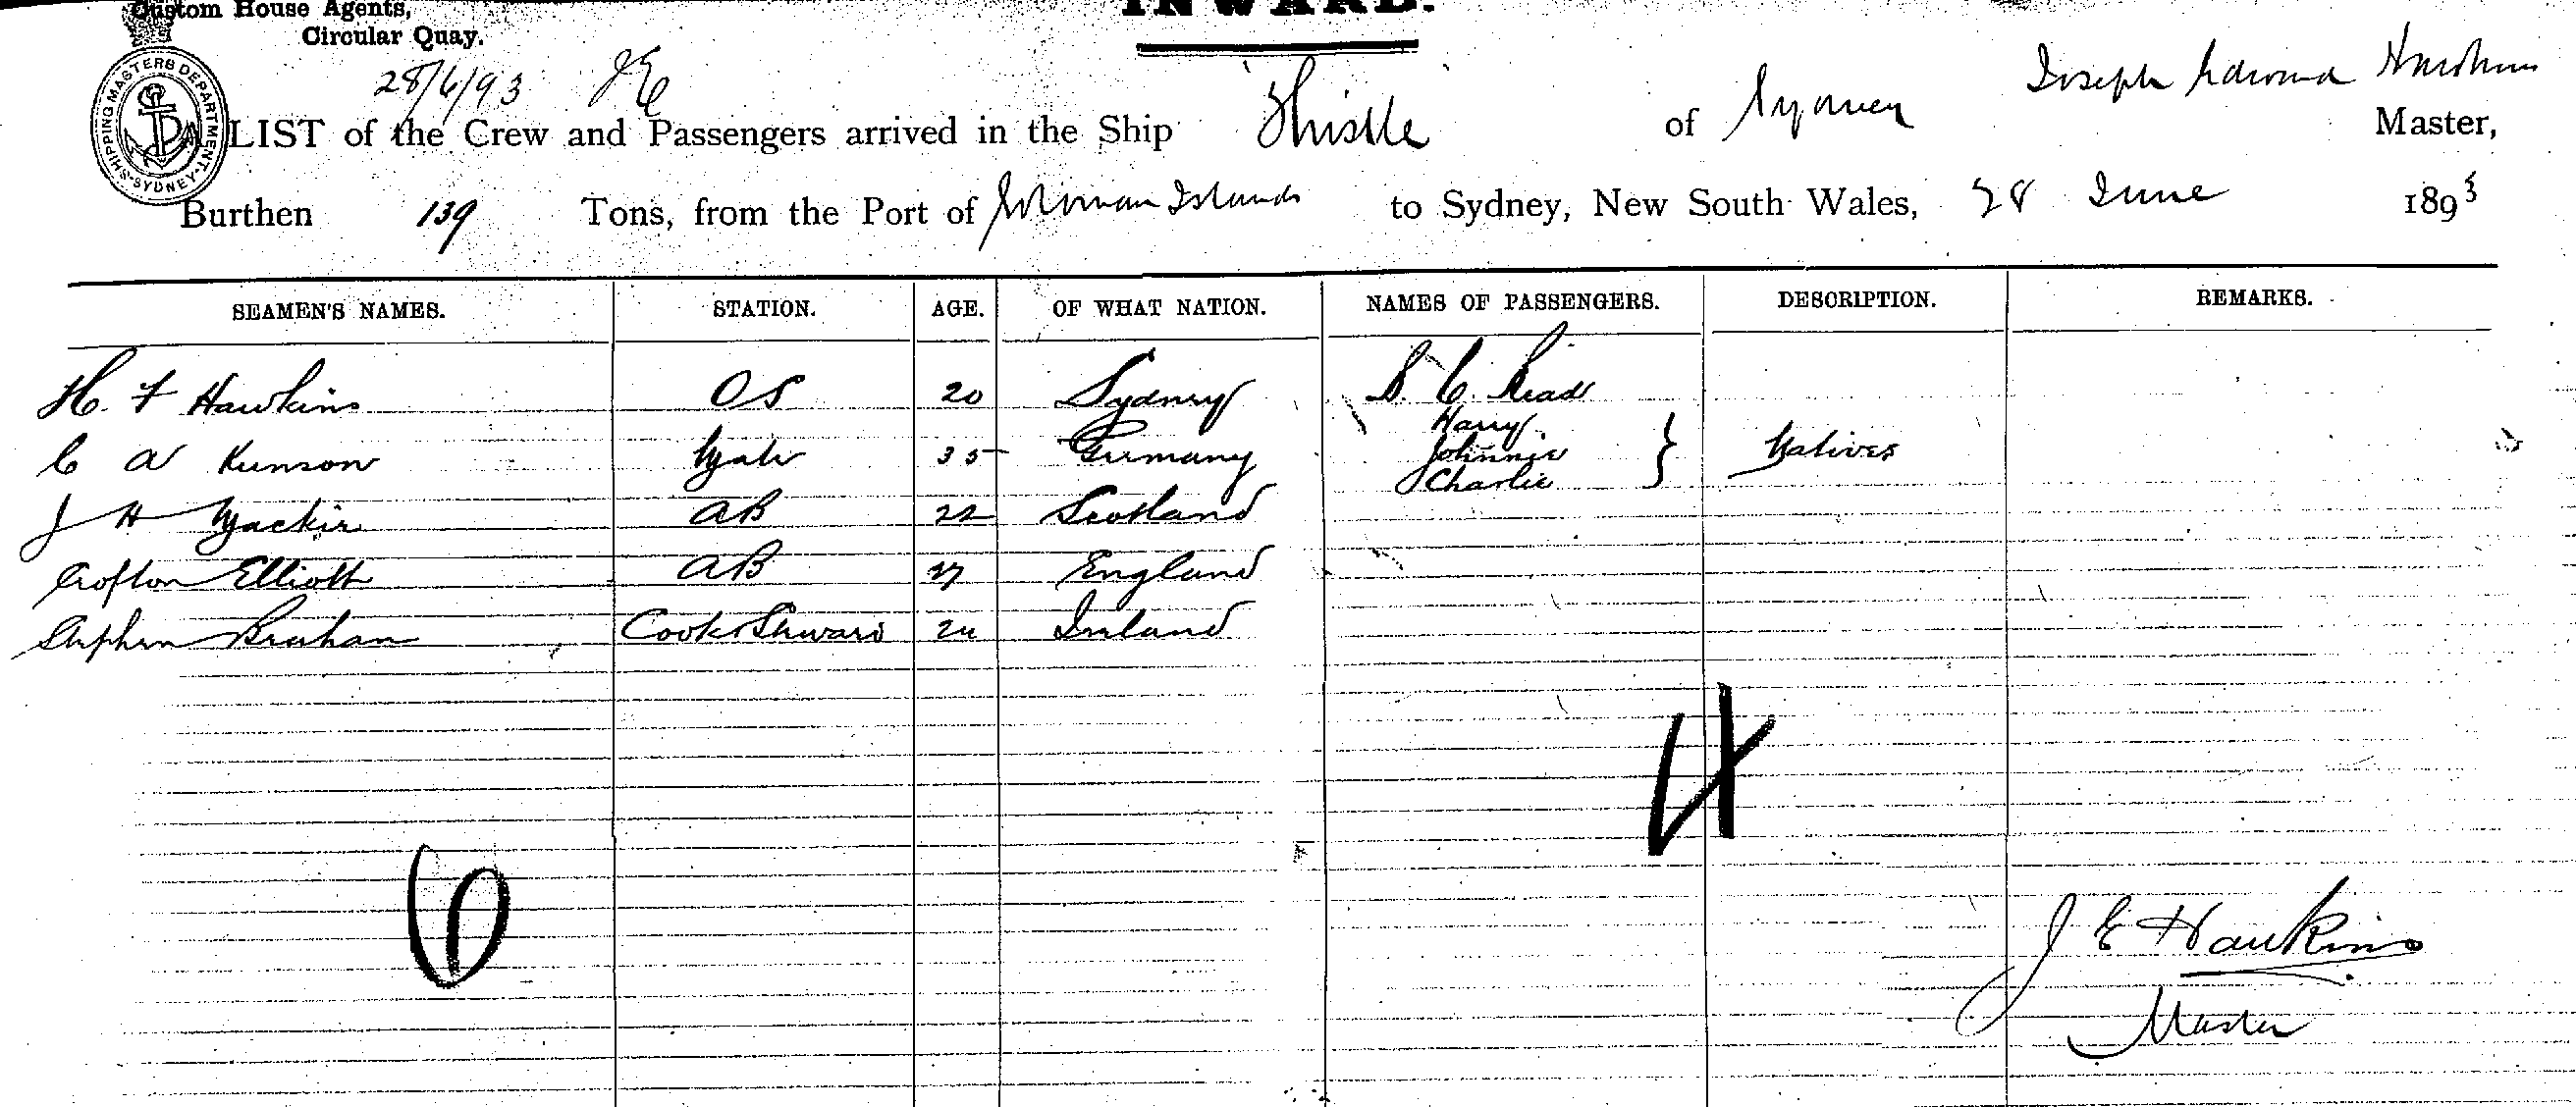 Custom House Agents,
INWARD.
Circular Quay.
28/6/93 JE
SHIPPING MASTERS DEPARTMENT SYDNEY
Joseph Edward Hawkins
LIST of the Crew and Passengers arrived in the Ship Thistle of Sydney Master,
Burthen 139 Tons, from the Port of Solomon Islands to Sydney, New South Wales, 28 June 1893
SEAMEN'S NAMES. STATION. AGE. OF WHAT NATION. NAMES OF PASSENGERS. DESCRIPTION. REMARKS.
H. F Hawkins OS 20 Sydney C. Read
Harry
C A Kunson Mate 35 Germany Johnnie } Natives
Charlie
J H Mackie AB 22 Scotland
Crofton Elliott AB 27 England
Stephen Braham Cook & Steward 24 Ireland
4
6
J E Hawkins
Master